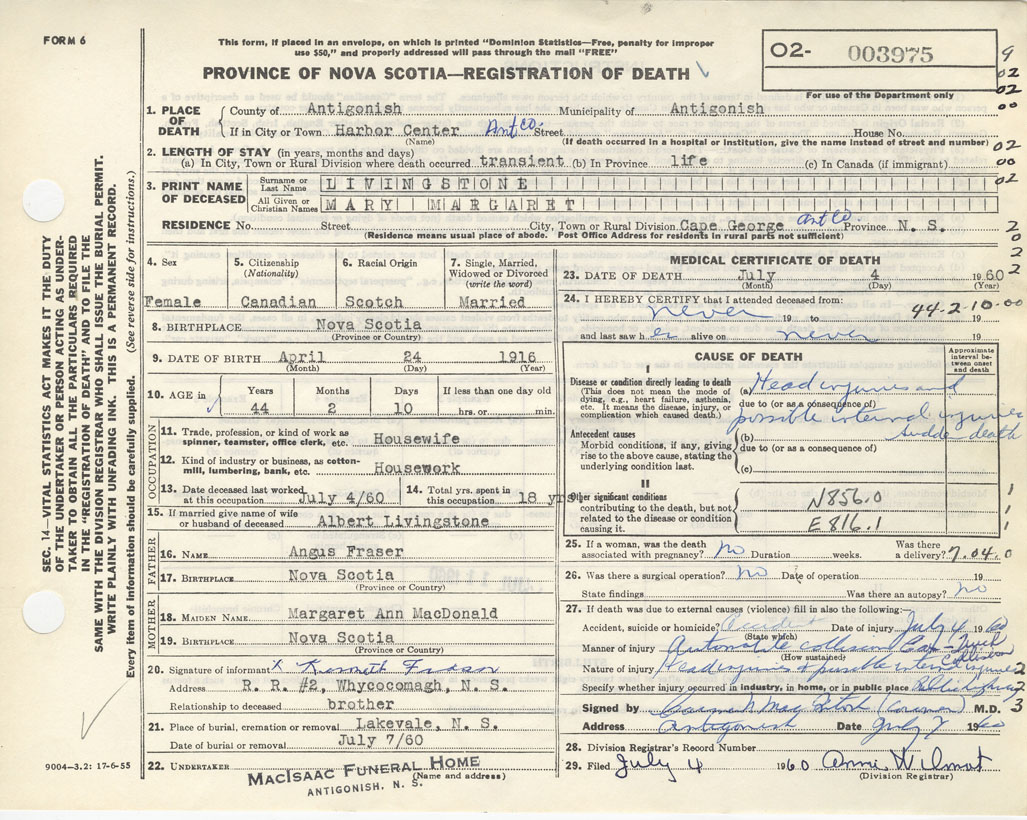 FORM 6
This form, if placed in an envelope, on which is printed "Dominion Statistics—Free, penalty for improper
use $50," and properly addressed will pass through the mail "FREE"
PROVINCE OF NOVA SCOTIA—REGISTRATION OF DEATH
O2- 003975
For use of the Department only
9
02
02
00
02
00
02
2
2
2
1. PLACE OF DEATH
County of Antigonish Municipality of Antigonish
If in City or Town Harbor Center Ant Co. Street House No.
(Name) (If death occurred in a hospital or institution, give the name instead of street and number)
2. LENGTH OF STAY (in years, months and days)
(a) In City, Town or Rural Division where death occurred transient (b) In Province life (c) In Canada (if immigrant)
3. PRINT NAME OF DECEASED
Surname or Last Name LIVINGSTONE
All Given or Christian Names MARY MARGARET
RESIDENCE No. Street City, Town or Rural Division Cape George Ant Co. Province N. S.
(Residence means usual place of abode. Post Office Address for residents in rural parts not sufficient)
4. Sex
Female
5. Citizenship
(Nationality)
Canadian
6. Racial Origin
Scotch
7. Single, Married,
Widowed or Divorced
(write the word)
Married
8. BIRTHPLACE Nova Scotia
(Province or Country)
9. DATE OF BIRTH April 24 1916
(Month) (Day) (Year)
10. AGE in
Years Months Days If less than one day old
44 2 10 hrs. or min.
OCCUPATION
11. Trade, profession, or kind of work as
spinner, teamster, office clerk, etc. Housewife
12. Kind of industry or business, as cotten-
mill, lumbering, bank, etc. Housework
13. Date deceased last worked
at this occupation July 4/60
14. Total yrs. spent in
this occupation 18 yrs
15. If married give name of wife
or husband of deceased Albert Livingstone
FATHER
16. NAME Angus Fraser
17. BIRTHPLACE Nova Scotia
(Province or Country)
MOTHER
18. MAIDEN NAME Margaret Ann MacDonald
19. BIRTHPLACE Nova Scotia
(Province or Country)
20. Signature of informant X Kenneth Fraser
Address R. R. #2, Whycocomagh, N. S.
Relationship to deceased brother
21. Place of burial, cremation or removal Lakevale, N. S.
Date of burial or removal July 7/60
22. UNDERTAKER MACISAAC FUNERAL HOME
(Name and address)
ANTIGONISH, N. S.
MEDICAL CERTIFICATE OF DEATH
23. DATE OF DEATH July 4 1960
(Month) (Day) (Year)
24. I HEREBY CERTIFY that I attended deceased from:
44-2-10-00
never 19 to 19
and last saw h er alive on never 19
CAUSE OF DEATH
Approximate interval between onset and death
I
Disease or condition directly leading to death
(This does not mean the mode of
dying, e.g., heart failure, asthenia,
etc. It means the disease, injury, or
complication which caused death.)
(a) Head injuries and
due to (or as a consequence of)
possible internal injuries
sudden death
Antecedent causes
Morbid conditions, if any, giving
rise to the above cause, stating the
underlying condition last.
(b)
due to (or as a consequence of)
(c)
II
Other significant conditions
contributing to the death, but not
related to the disease or condition
causing it.
N856.0
E816.1
1
1
1
25. If a woman, was the death
associated with pregnancy? no Duration weeks. Was there
a delivery? 7.04.0
26. Was there a surgical operation? no Date of operation 19
State findings Was there an autopsy? no
27. If death was due to external causes (violence) fill in also the following:—
Accident, suicide or homicide? Accident Date of injury July 4 1960
(State which)
Manner of injury Automobile collision Car - Truck
(How sustained) Collision
Nature of injury Head injuries & possible internal injuries 2
Specify whether injury occurred in industry, in home, or in public place 2
Signed by (Coroner) M.D. 3
Address Antigonish Date July 7 1960
28. Division Registrar's Record Number
29. Filed July 4 1960 Anne Wilmot
(Division Registrar)
SEC. 14—VITAL STATISTICS ACT MAKES IT THE DUTY
OF THE UNDERTAKER OR PERSON ACTING AS UNDER-
TAKER TO OBTAIN ALL THE PARTICULARS REQUIRED
IN THE "REGISTRATION OF DEATH" AND TO FILE THE
SAME WITH THE DIVISION REGISTRAR WHO SHALL ISSUE THE BURIAL PERMIT.
WRITE PLAINLY WITH UNFADING INK. THIS IS A PERMANENT RECORD.
Every item of information should be carefully supplied. (See reverse side for instructions.)
9004—3.2: 17-6-55